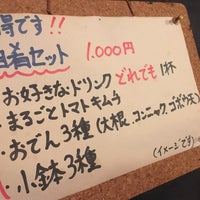 得です!!
肴セット 1.000円
・お好きなドリンクどれでも1杯
・まるごとトマトキムチ
・おでん3種(大根、コンニャク、ゴボウ天)
・小鉢3種 (イメージです)